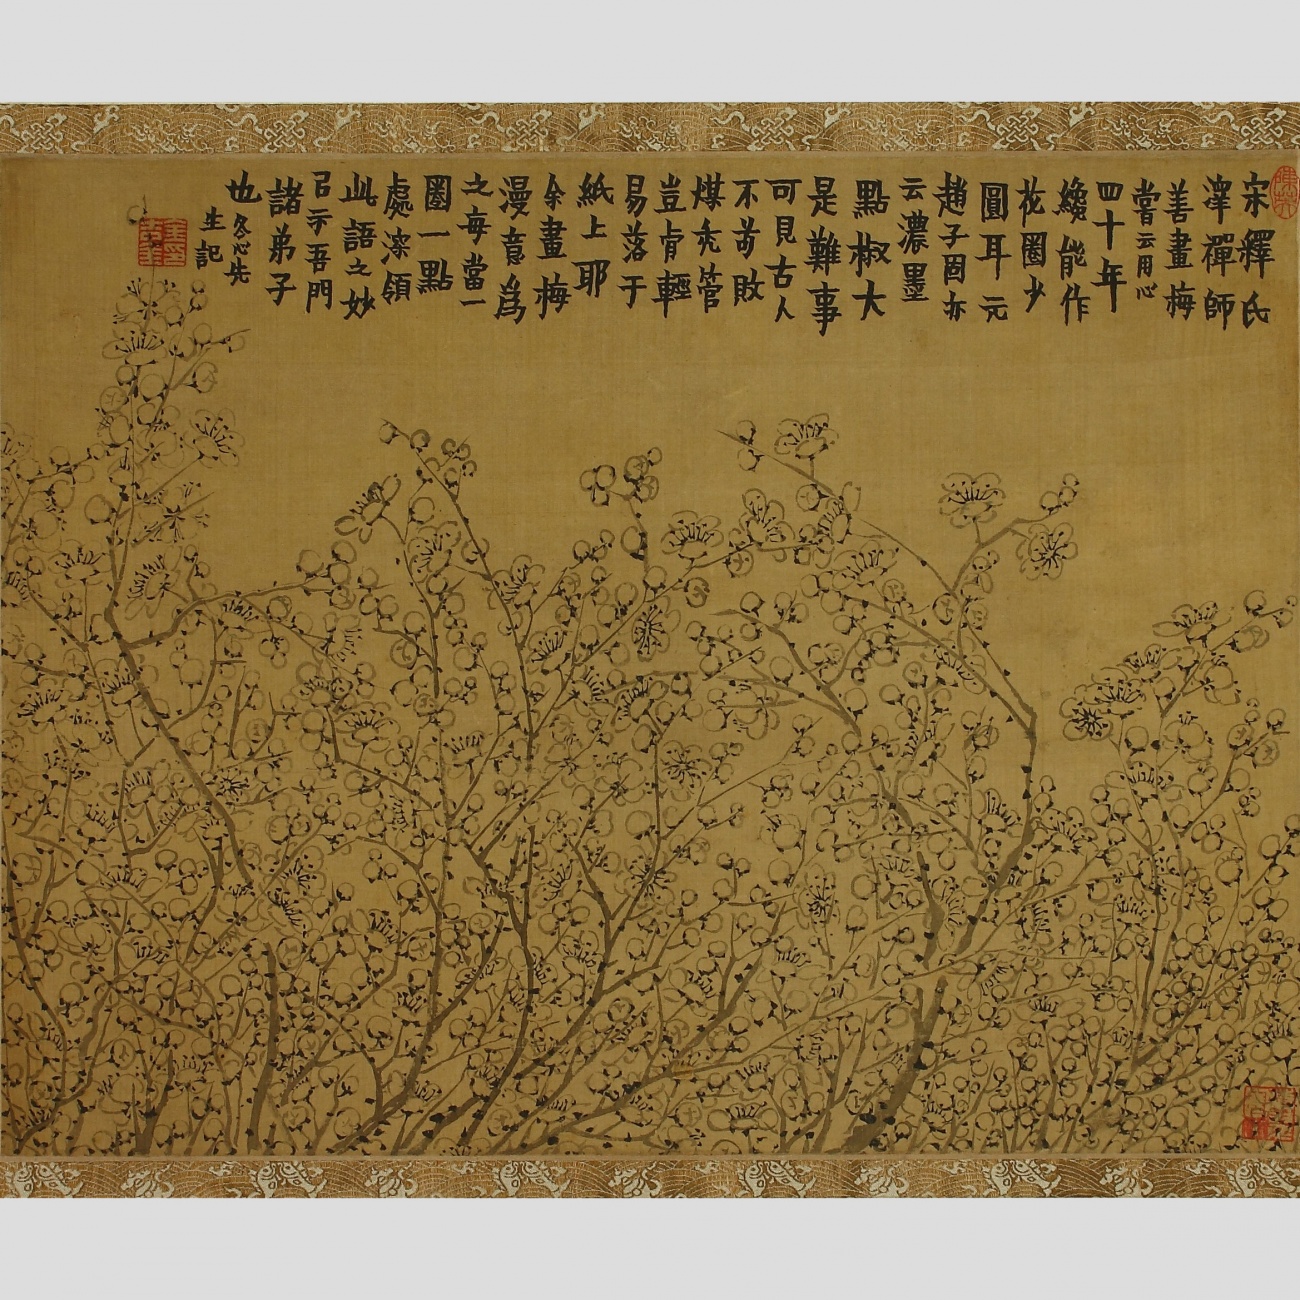 宋釋氏
澤禪師
善畫梅
嘗云用心
四十年
纔能作
花圈少
圓耳元
趙子固亦
云濃墨
點椒大
是難事
可見古人
不苟敗
煤禿管
豈肯輕
易落于
紙上耶
余畫梅
漫意爲
之每當一
圈一點
處深領
此語之妙
已示吾門
諸弟子
也冬心先
生記